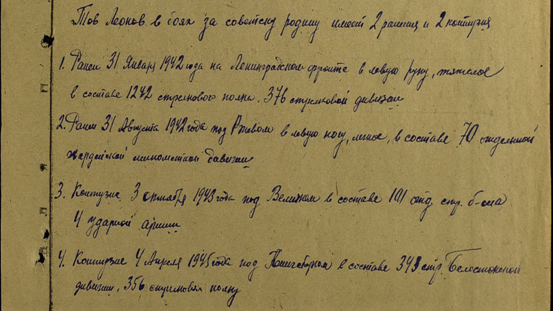 Тов Леонов в боях за советску родину имеет 2 ранения и 2 контузия
1. Ранен 31 Января 1942 года на Ленинградском фронте в левую руку, тяжелое
в составе 1242 стрелкового полка. 376 стрелковой дивизии
2. Ранен 31 Августа 1942 года под Ржевом в левую ногу, легкое, в составе 70 отдельной
минометной
3. Контузия 3 октября 1943 года под Велижом в составе 101 отд. стр. б-она
4 ударной армии
4. Контузие 4 Апреля 1945 года под в составе 343 стр. Белостокской
дивизии, 356 стрелковом полку